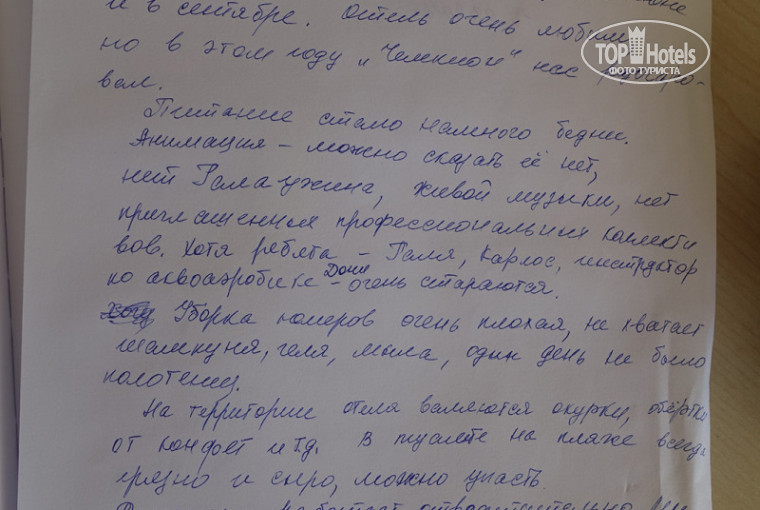 и в сентябре. Отель очень любим
TOPHotels
ФОТО ТУРИСТА
но в этом году „Чемкиои“ нас
вал.
Питание стало намного беднее.
Анимация – можно сказать её нет,
нет Гала ужина, живой музыки, нет
приглашенных профессиональных коллекти
вов. Хотя ребята – Галя, Карлос, инструктор
по аквоаэробике Дони – очень стараются.
Уборка номеров очень плохая, не хватает
шампуня, геля, мыла, один день не было
полотенец.
На территории отеля валяются окурки, обёртки
от конфет и т.д. В туалете на пляже всегда
грязно и сыро, можно упасть.
работает отвратительно